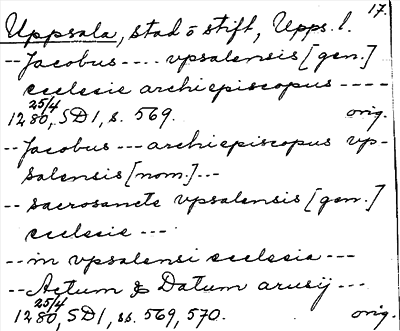 17.
Uppsala, stad o stift, Upps. l.
-- Jacobus ---- vpsalensis [gen.]
ecclesie archiepiscopus ----
25/4
1280, SD1, s. 569. orig.
-- Jacobus --- archiepiscopus vp-
salensis [nom.] ---
-- sacrosancte vpsalensis [gen.]
ecclesie ---
-- in vpsalensi ecclesia ---
-- Actum & Datum arusij ---
25/4
1280, SD1, ss. 569, 570. orig.